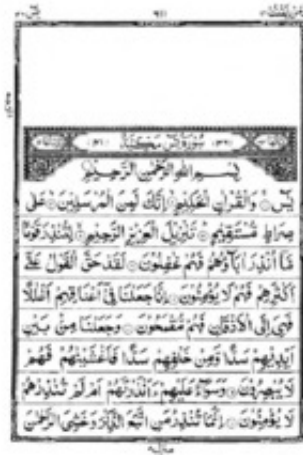 سورة يس مكية
بسم الله الرحمن الرحيم
يس والقرآن الحكيم إنك لمن المرسلين على
صراط مستقيم تنزيل العزيز الرحيم لتنذر قوما
ما أنذر اباؤهم فهم غفلون لقد حق القول على
أكثرهم فهم لا يؤمنون إنا جعلنا في أعناقهم أغللا
فهي إلى الأذقان فهم مقمحون وجعلنا من بين
أيديهم سدا ومن خلفهم سدا فأغشينهم فهم
لا يبصرون وسواء عليهم ءأنذرتهم أم لم تنذرهم
لا يؤمنون إنما تنذر من اتبع الذكر وخشي الرحمن